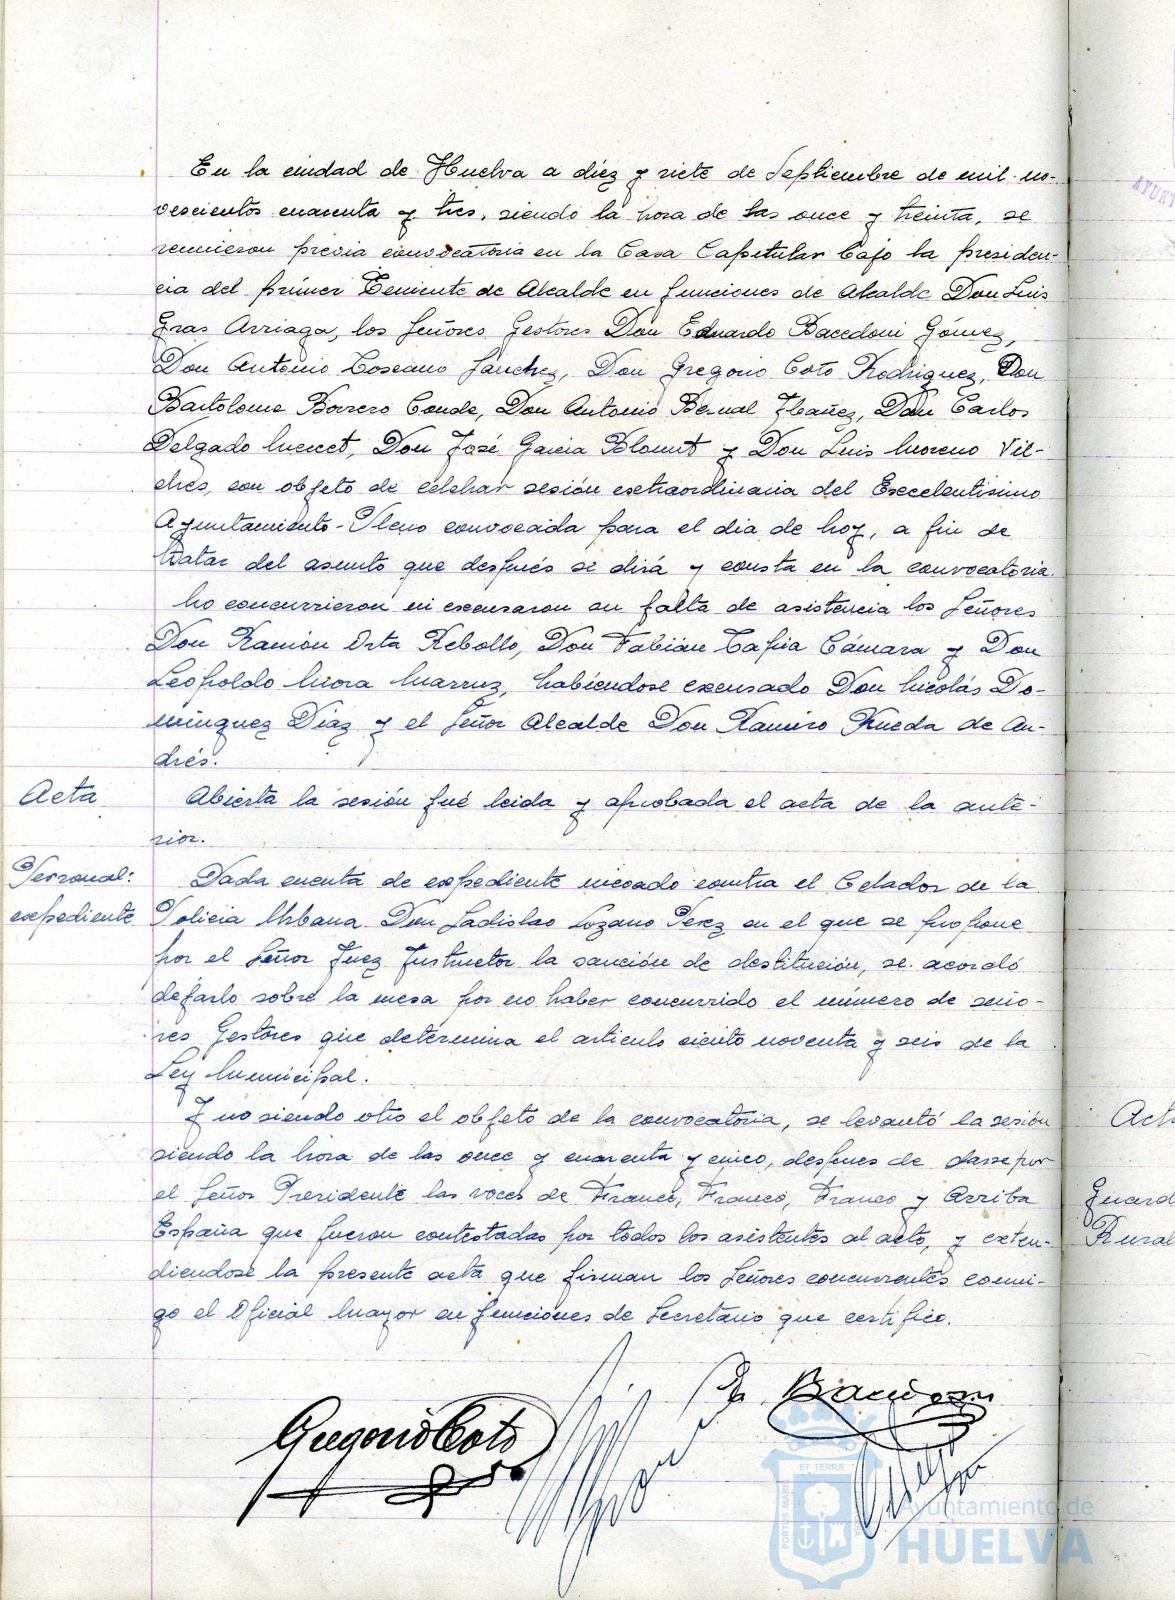 En la ciudad de Huelva a diez y siete de Septiembre de mil no-
vescientos cuarenta y tres, siendo la hora de las once y treinta, se
reunieron previa convocatoria en la Casa Capitular bajo la presiden-
cia del primer Teniente de Alcalde en funciones de Alcalde Don Luis
Gras Arriaga, los Señores Gestores Don Eduardo Bacedoni Gómez,
Don Antonio Toscano Sánchez, Don Gregorio Coto Rodriguez, Don
Bartolome Borrero Conde, Don Antonio Bernal Ibañez, Don Carlos
Delgado Don José Garcia Blount y Don Luis Moreno Vil-
ches, con objeto de celebrar sesión extraordinaria del Excelentisimo
Ayuntamiento-Pleno convocada para el dia de hoy, a fin de
tratar del asunto que después se dirá y consta en la convocatoria.
No concurrieron ni excusaron su falta de asistencia los Señores
Don Ramón Orta Rebollo, Don Fabián Tapia Cámara y Don
Leopoldo Mora habiéndose excusado Don Nicolás Do-
minguez Diaz y el Señor Alcalde Don Ramiro Rueda de An-
drés.
Acta
Abierta la sesión fué leida y aprobada el acta de la ante-
rior.
Personal:
expediente
Dada cuenta de expediente incoado contra el Celador de la
Policia Urbana Don Ladislao Lozano Perez en el que se propone
por el Señor Juez Instructor la sanción de destitución, se acordó
dejarlo sobre la mesa por no haber concurrido el número de seño-
res Gestores que determina el articulo ciento noventa y seis de la
Ley Municipal.
Y no siendo otro el objeto de la convocatoria, se levantó la sesión
siendo la hora de las once y cuarenta y cinco, despues de darse por
el Señor Presidente las voces de Franco, Franco, Franco y Arriba
España que fueron contestadas por todos los asistentes al acto, y exten-
diendose la presente acta que firman los Señores concurrentes conmi-
go el Oficial Mayor en funciones de Secretario que certifico.
Gregorio Coto
E. Bacedoni
Act
Guard
Rural
AYUNT
PORTUS MARIS
ET TERRÆ
Ayuntamiento de
HUELVA